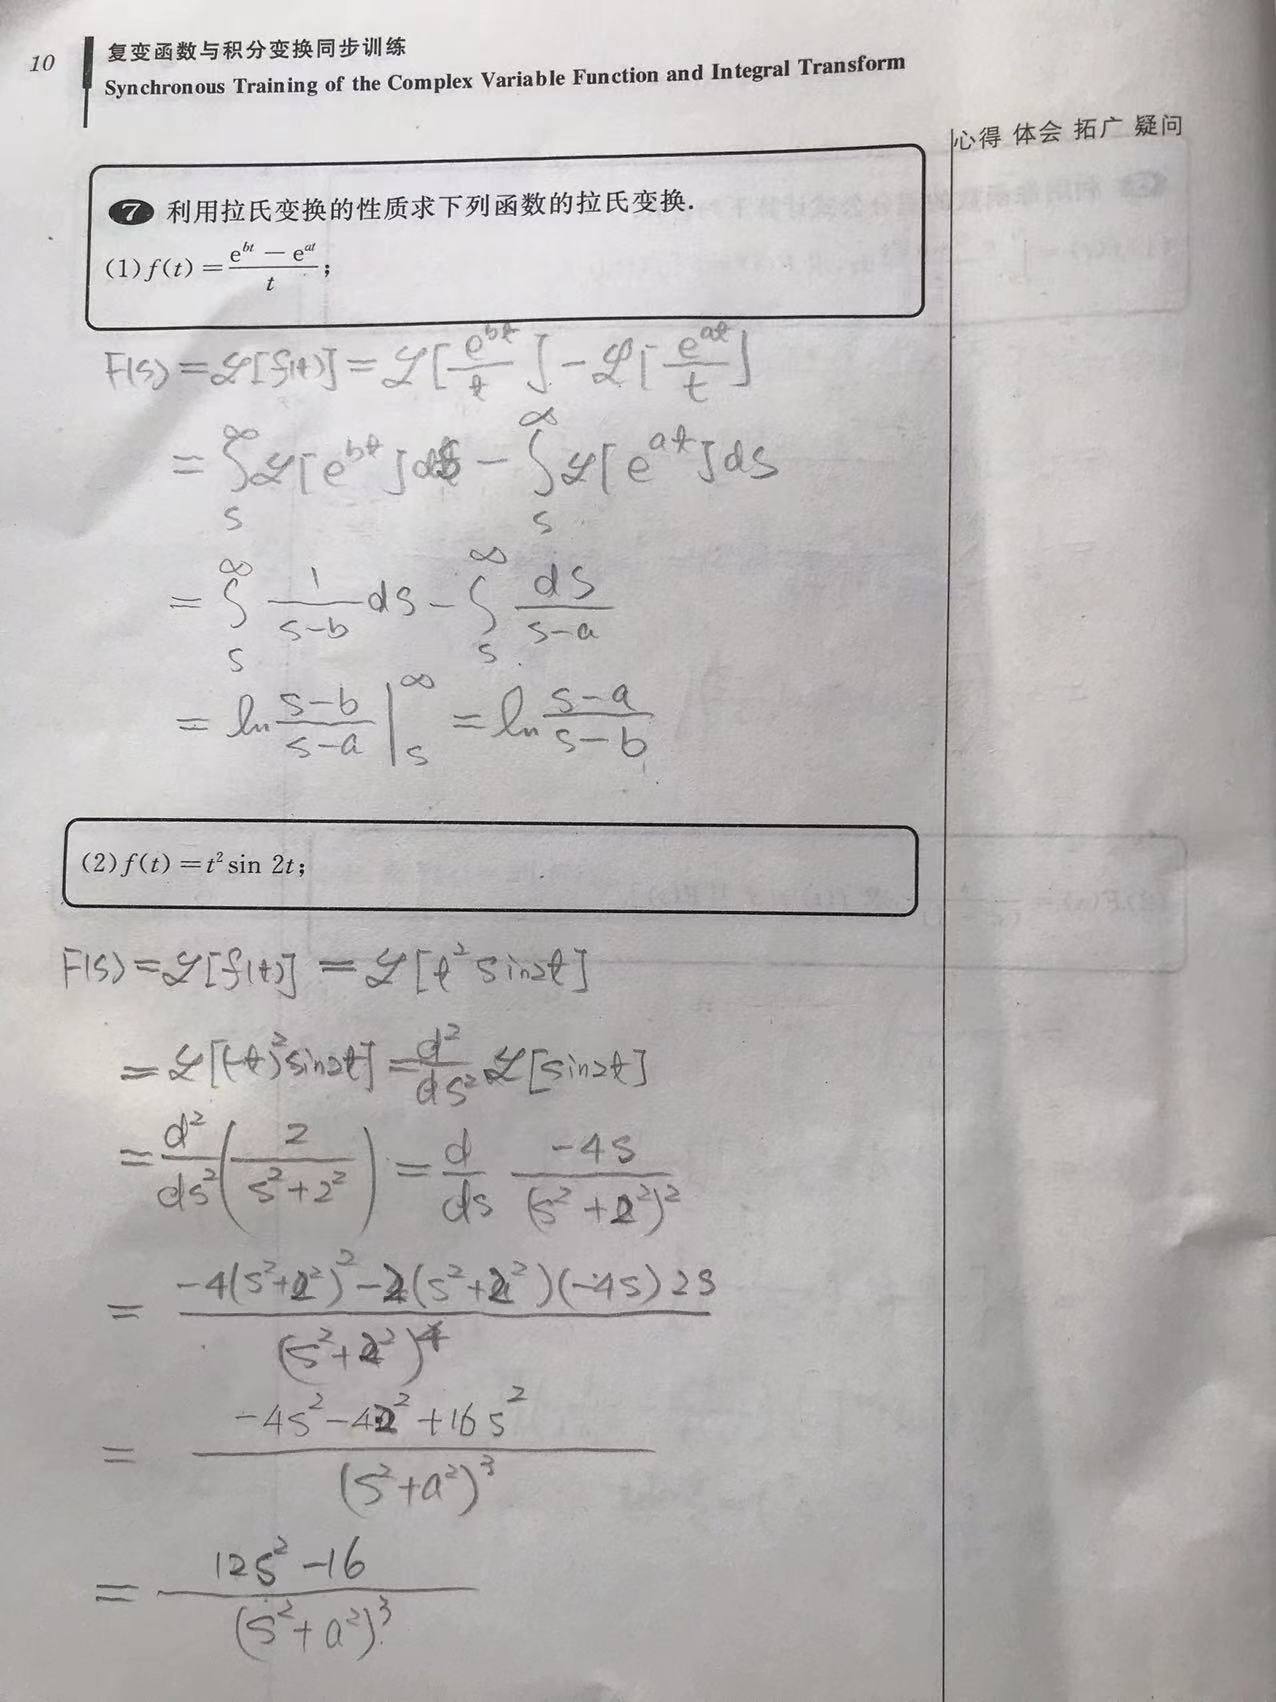 10
复变函数与积分变换同步训练
Synchronous Training of the Complex Variable Function and Integral Transform
心得 体会 拓广 疑问
7 利用拉氏变换的性质求下列函数的拉氏变换.
(1) f(t) = (e^{bt} − e^{at})/t ;
F(s) = ℒ[f(t)] = ℒ[e^{bt}/t] − ℒ[e^{at}/t]
= ∫_s^∞ ℒ[e^{bt}]ds − ∫_s^∞ ℒ[e^{at}]ds
= ∫_s^∞ 1/(s−b) ds − ∫_s^∞ ds/(s−a)
= ln (s−b)/(s−a) |_s^∞ = ln (s−a)/(s−b)
(2) f(t) = t² sin 2t;
F(s) = ℒ[f(t)] = ℒ[t² sin2t]
= ℒ[(-t)² sin2t] = d²/ds² ℒ[sin2t]
= d²/ds² (2/(s²+2²)) = d/ds (−4s)/(s²+2²)²
= (−4(s²+2²)² − 2(s²+2²)(−4s)2s)/(s²+2²)⁴
= (−4s² − 4·2² + 16s²)/(s²+a²)³
= (12s² − 16)/(s²+a²)³